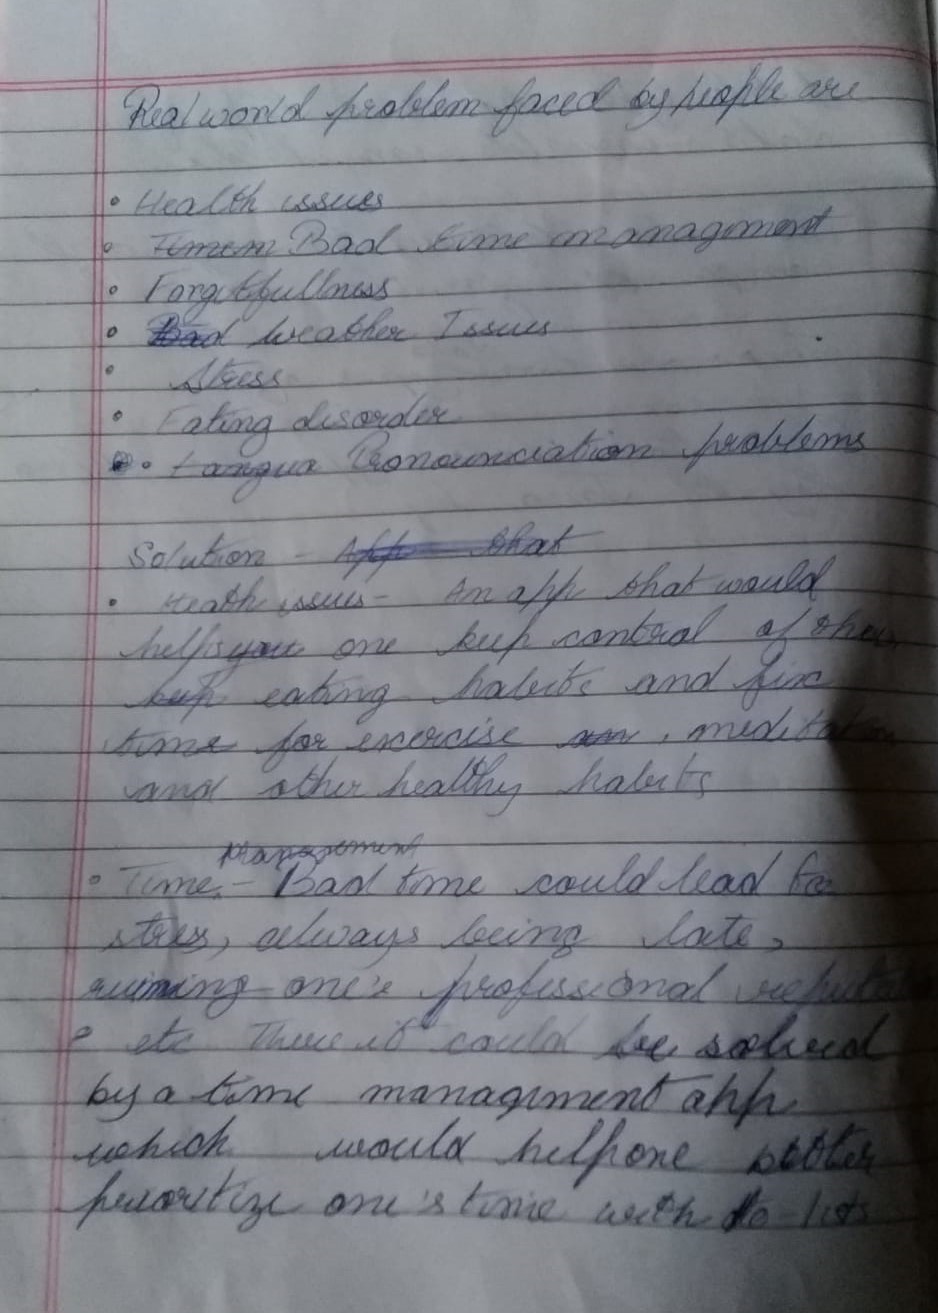 Real world problem faced by people are
• Health issues
• Timem Bad time managment
• Forgetfullness
• Bad weather Issues
• Stress
• Eating disorder
• Langua Pronounciation problems
Solution - App that
• Health issues - An app that would
helps you one keep control of their
keep eating habits and fix
time for exercise, meditation
and other healthy habits
Management
• Time - Bad time could lead to
stress, always being late,
ruining one's professional
• etc could be solved
by a time managment app
which would help one better
prioritize one's time with to-lists